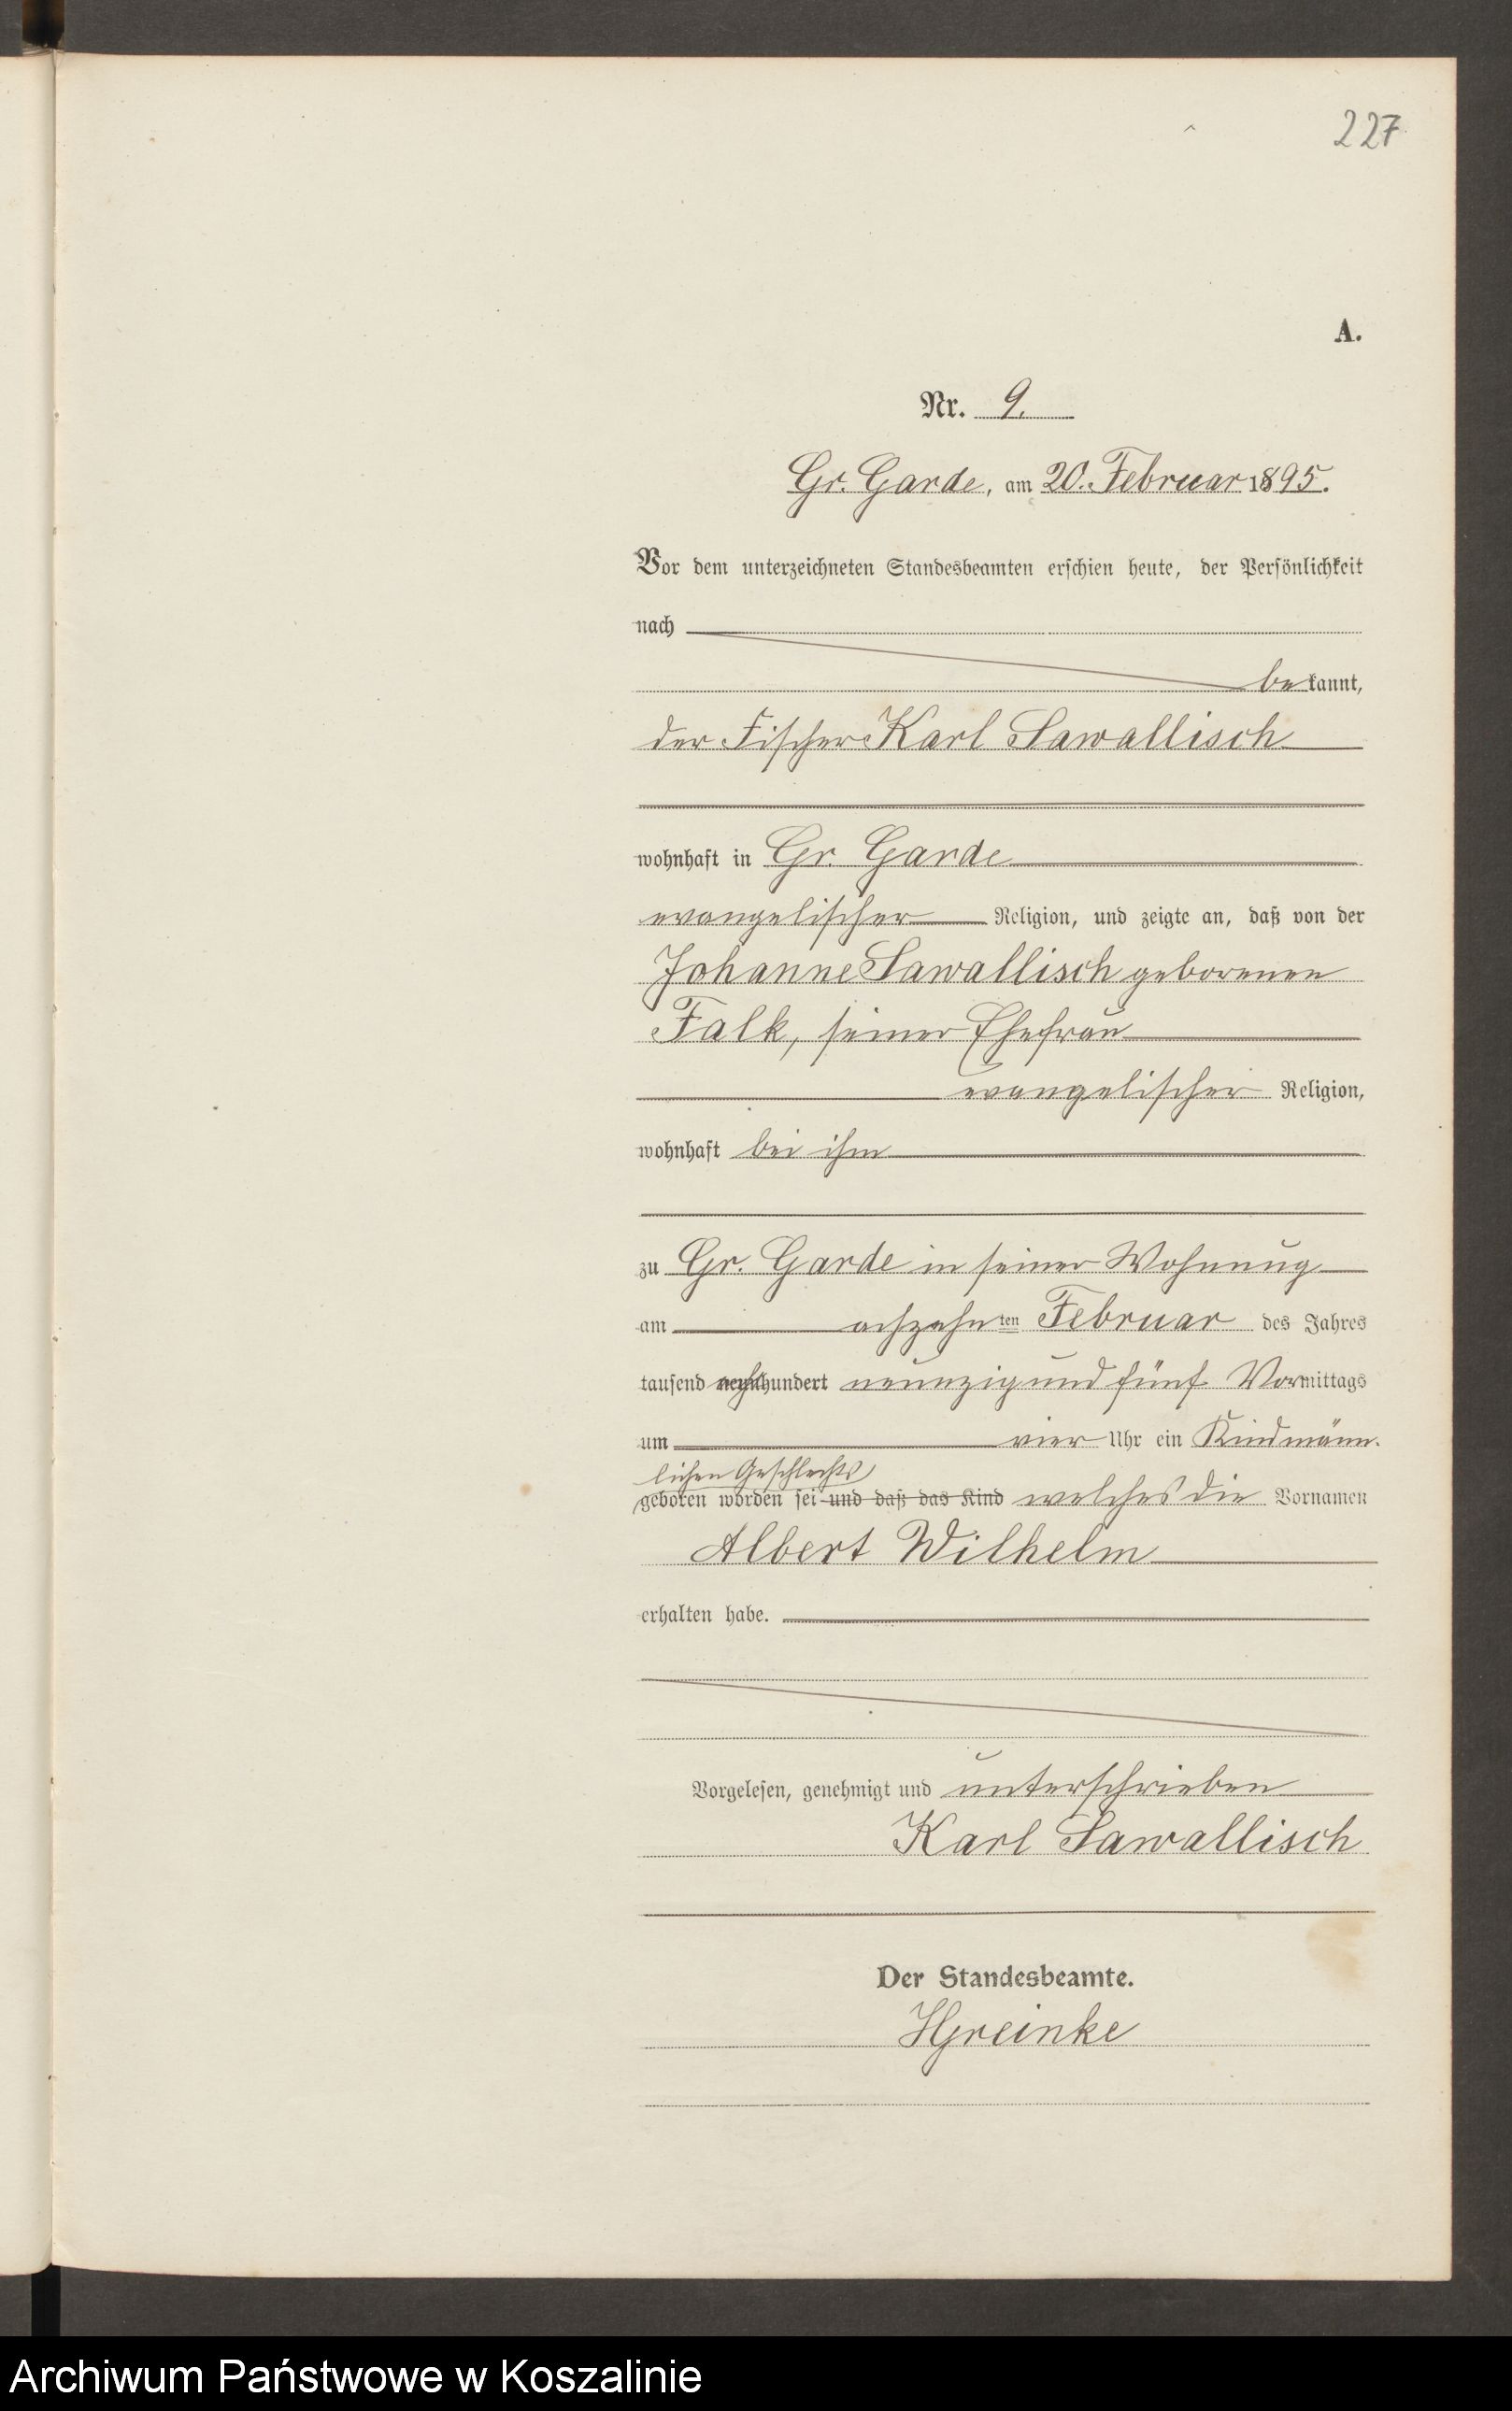 227
A.
Nr. 9.
Gr. Garde, am 20. Februar 1895.
Vor dem unterzeichneten Standesbeamten erschien heute, der Persönlichkeit
nach
bekannt,
der Fischer Karl Sawallisch
wohnhaft in Gr. Garde
evangelischer Religion, und zeigte an, daß von der
Johanne Sawallisch geborenen
Falk, seiner Ehefrau
evangelischer Religion,
wohnhaft bei ihm
zu Gr. Garde in seiner Wohnung
am achzehnten Februar des Jahres
tausend achthundert neunzig und fünf Vormittags
um vier Uhr ein Kind männ-
lichen Geschlechts
geboren worden sei und daß das Kind welches die Vornamen
Albert Wilhelm
erhalten habe.
Vorgelesen, genehmigt und unterschrieben
Karl Sawallisch
Der Standesbeamte.
HGreinke
Archiwum Państwowe w Koszalinie